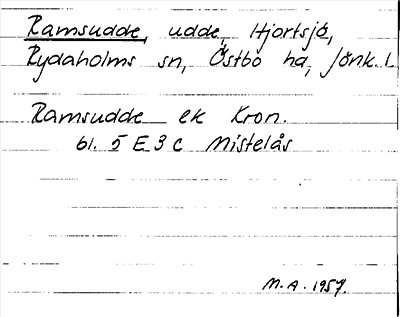 Ramsudde, udde, Hjortsjö,
Rydaholms sn, Östbo hd, Jönk. l.
Ramsudde ek Kron.
bl. 5 E 3 c Mistelås
M.A. 1957.